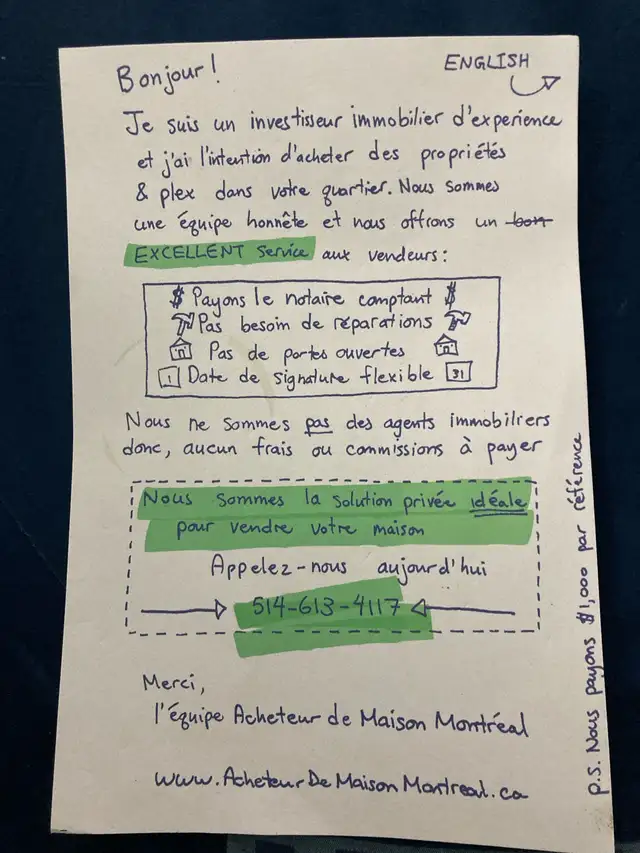 Bonjour!
ENGLISH
Je suis un investisseur immobilier d'experience
et j'ai l'intention d'acheter des propriétés
& plex dans votre quartier. Nous sommes
une équipe honnête et nous offrons un bon
EXCELLENT service aux vendeurs:
$ Payons le notaire comptant $
Pas besoin de réparations
Pas de portes ouvertes
1 Date de signature flexible 31
Nous ne sommes pas des agents immobiliers
donc, aucun frais ou commissions à payer
Nous sommes la solution privée idéale
pour vendre votre maison
Appelez-nous aujourd'hui
514-613-4117
Merci,
l'équipe Acheteur de Maison Montréal
www.AcheteurDeMaisonMontreal.ca
P.S. Nous payons $1,000 par référence